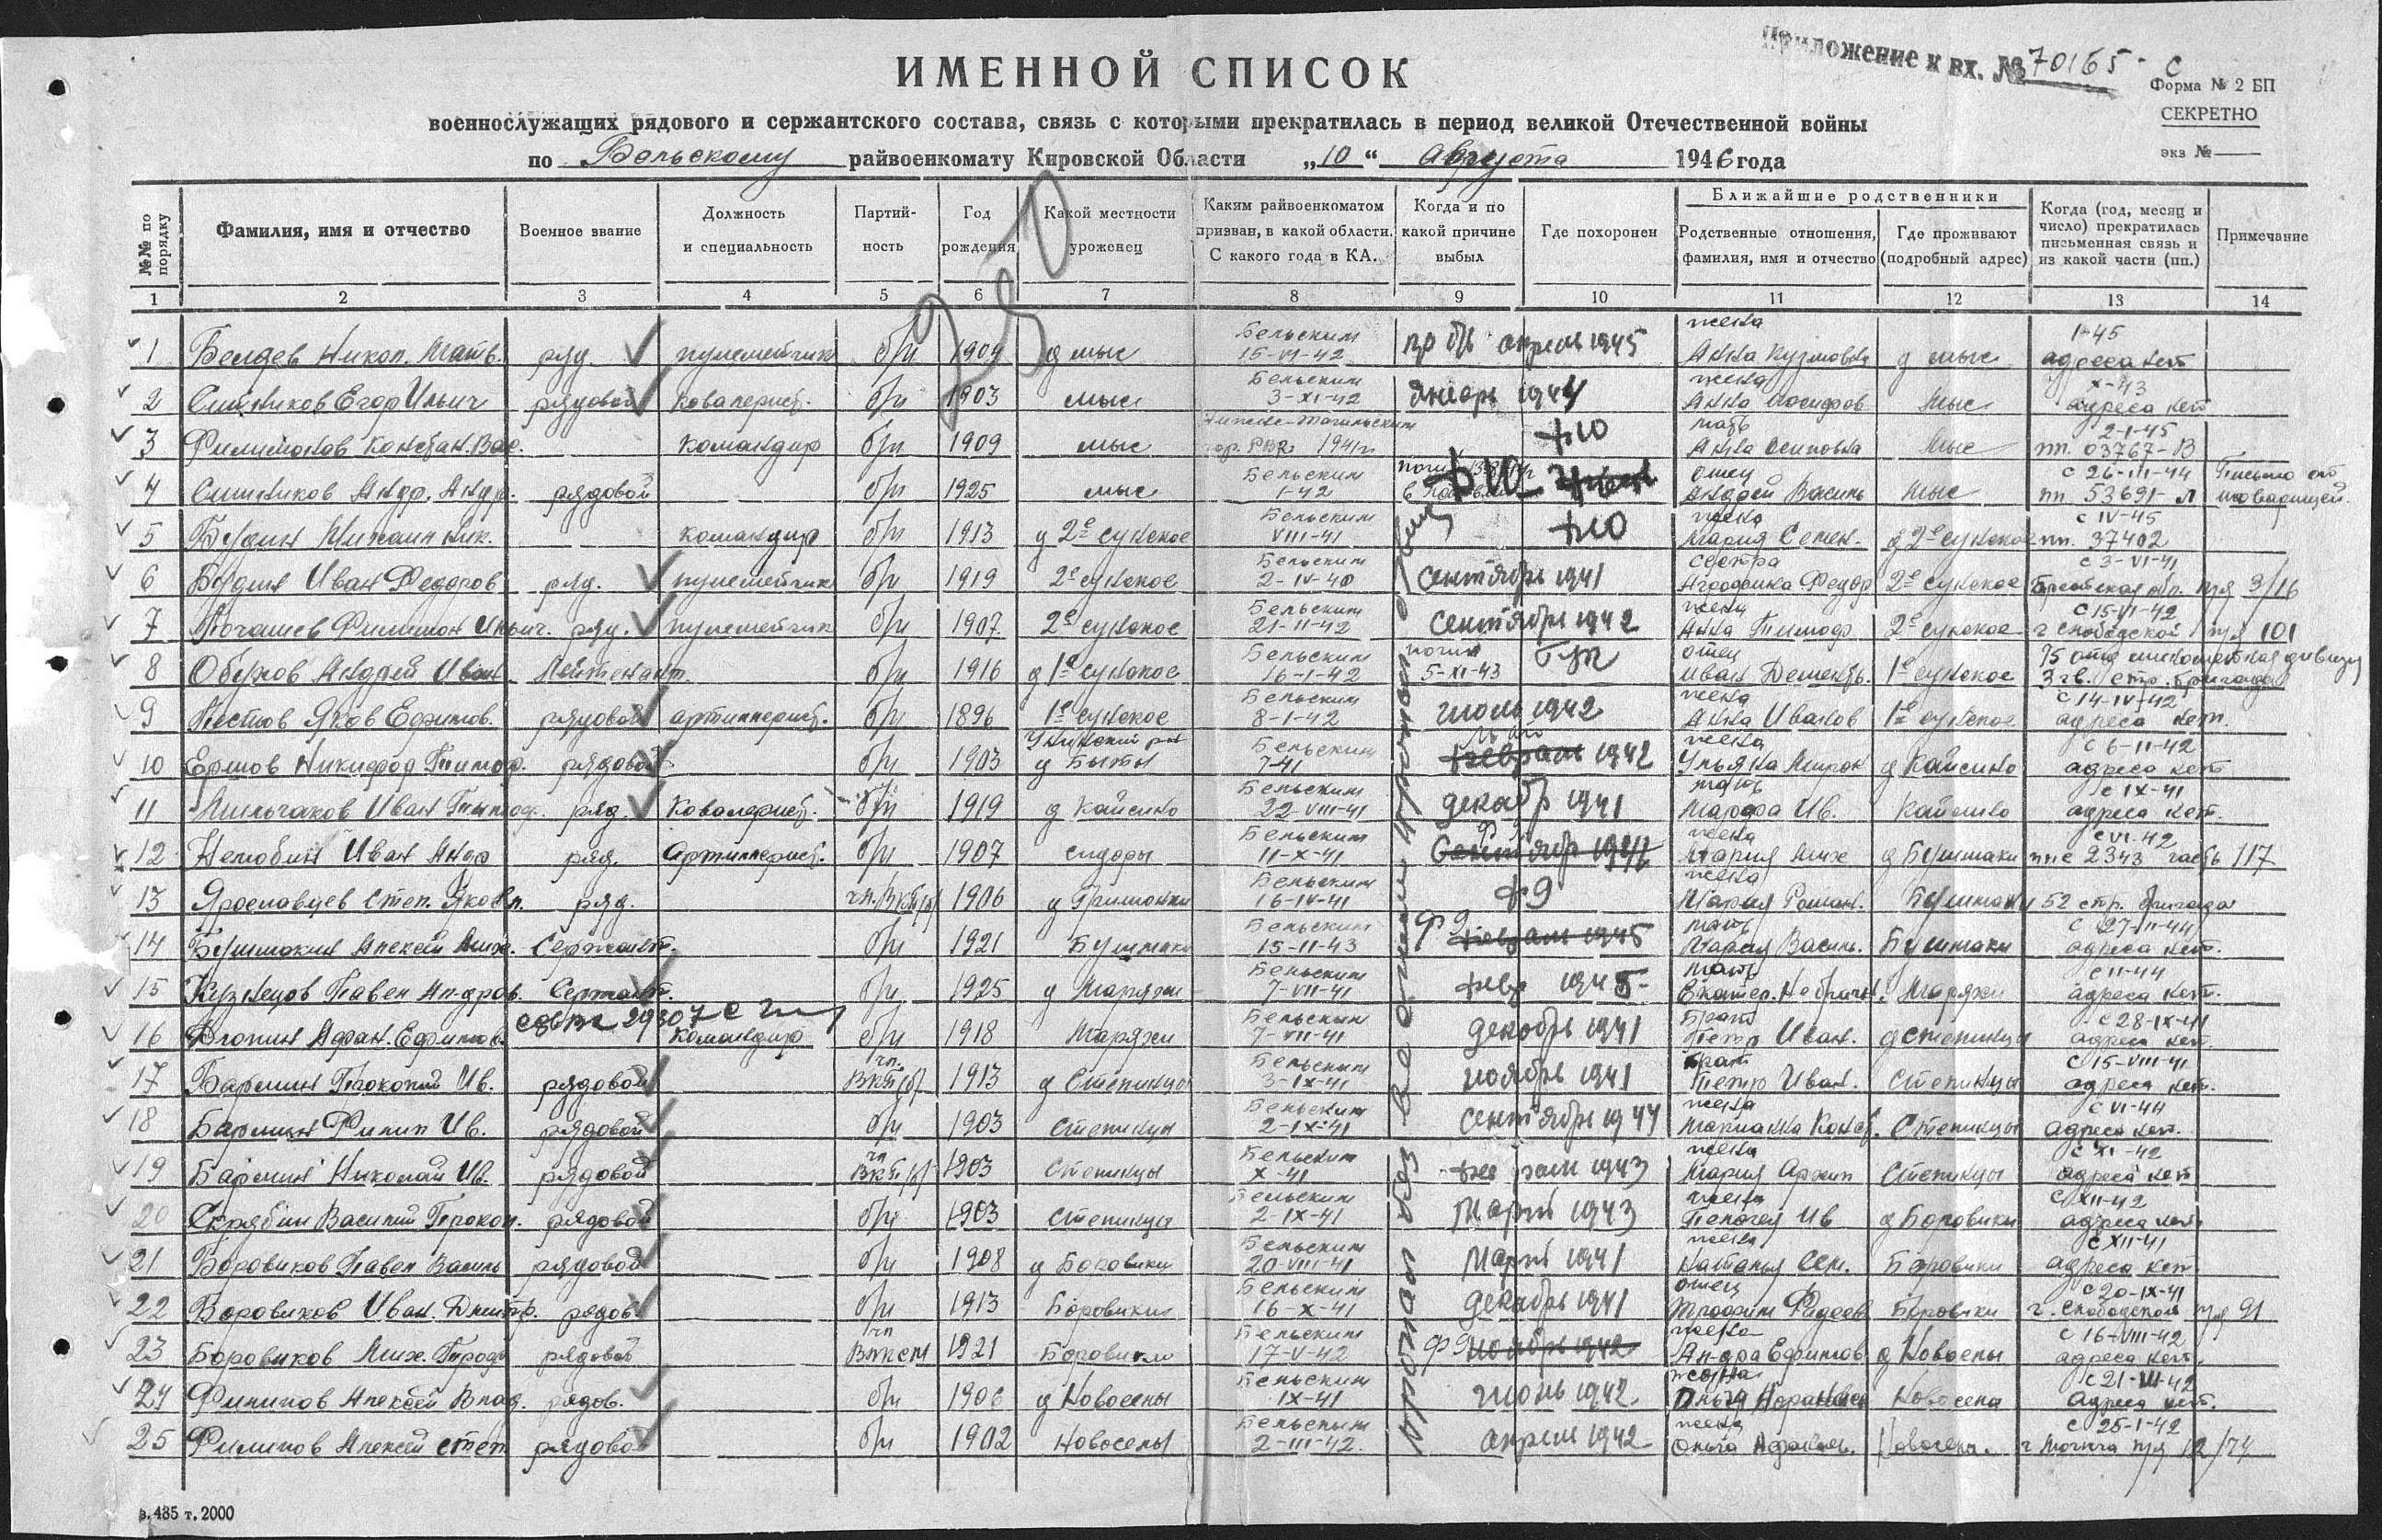 Приложение к вх. № 70165 - с
Форма № 2 БП
СЕКРЕТНО
экз №
ИМЕННОЙ СПИСОК
военнослужащих рядового и сержантского состава, связь с которыми прекратилась в период великой Отечественной войны
по Бельскому райвоенкомату Кировской Области „10“ августа 1946 года
№№ по порядку Фамилия, имя и отчество Военное звание Должность и специальность Партий- ность Год рождения Какой местности уроженец Каким райвоенкоматом призван, в какой области. С какого года в КА. Когда и по какой причине выбыл Где похоронен Ближайшие родственники Родственные отношения, фамилия, имя и отчество Где проживают (подробный адрес) Когда (год, месяц и число) прекратилась письменная связь и из какой части (пп.) Примечание
1 2 3 4 5 6 7 8 9 10 11 12 13 14
250
1 Никол. Матв. ряд. пулеметчик б/п 1904 д мыс Бельским 15-VI-42 пр б/в апрель 1945 жена Анна Кузмовна д мыс 1-45 адреса нет
2 Ситников Егор Ильич рядовой б/п 1903 мыс Бельским 3-XI-42 январь 1944 жена Анна Иосифов мыс X-43 адреса нет
3 Филимонов Констан. Вас. командир б/п 1909 мыс 1941г мать Анна Осиповна мыс 2-1-45 пп. 03767-В
4 Ситников Андр. Андр. рядовой б/п 1925 мыс Бельским 1-42 отец Андрей Василь мыс с 26-III-44 пп. 53691-л Письмо от товарищей.
5 Будин Михаил Ник. командир б/п 1913 д 2е сунское Бельским VIII-41 жена Мария Семен. д 2е сунское с IV-45 пп. 37402
6 Будин Иван Федоров ряд. пулеметчик б/п 1919 2е сунское Бельским 2-IV-40 сентябрь 1941 сестра 2е сунское с 3-VI-41 п/я 3/16
7 Филимон Ильич. ряд. пулеметчик б/п 1907 2е сунское Бельским 21-II-42 сентябрь 1942 жена Анна Тимоф. 2е сунское с 15-VI-42 г слободской п/я 101
8 Обухов Андрей Иван Лейтенант б/п 1916 д 1е сунское Бельским 16-1-42 погиб 5-XI-43 отец Иван Дементь. 1е сунское 3 гв. стр. бригада
9 Пестов Яков Ефимов. рядовой артиллерист. б/п 1896 1е сунское Бельским 8-1-42 июль 1942 жена Анна Иванов 1е сунское с 14-IV-42 адреса нет.
10 Ершов Никифор Тимоф. рядовой б/п 1903 Унинский рн д Быты Бельским 7-41 май февраль 1942 жена Ульяна Мирон д Кайсино с 6-II-42 адреса нет
11 Мильчаков Иван Тимоф. ряд. Ковалерист. б/п 1919 д Кайсино Бельским 22-VIII-41 декабр 1941 мать Марфа Ив. Кайсино с IX-41 адреса нет.
12 Нелюбин Иван Андр ряд. Артиллерист. б/п 1907 сидоры Бельским 11-X-41 ф 9 жена Мария Мих д Бушмаки с VI-42 ппс 2343 часть 117
13 Ярославцев Степ. Яковл. ряд. чл. ВКП(б) 1906 д Гришонки Бельским 16-IV-41 ф9 жена Мария Роман. Бушмаки 52 стр. бригада
14 Бушмакин Алексей Мих. Сержант. б/п 1921 Бушмаки Бельским 15-II-43 ф 9 февраль 1945 мать Мария Василь. Бушмаки с 27-II-44 адреса нет.
15 Кузнецов Павел Ал-дров. Сержант. б/п 1925 д Маряжи Бельским 7-VII-41 февр 1945 мать Маряжи с II-44 адреса нет.
16 Афан. Ефимов. командир б/п 1918 Маряжи Бельским 7-VII-41 декабрь 1941 Брат Петр Иван. д степинцы с 28-IX-41 адреса нет.
17 Бармин Прокопий Ив. рядовой чл. ВКП(б) 1913 д Степинцы Бельским 3-IX-41 ноябрь 1941 брат Петр Иван. Степинцы с 15-VIII-41 адреса нет.
18 Бармин Филип Ив. рядовой б/п 1903 степинцы Бельским 2-IX-41 сентябрь 1944 жена Степинцы с VI-44 адреса нет.
19 Бармин Николай Ив. рядовой чл ВКП(б) 1903 Степинцы Бельским X-41 февраль 1943 жена Мария Архип Степинцы с XI-42 адреса нет
20 Скрябин Василий Прокоп. рядовой б/п 1903 степинцы Бельским 2-IX-41 март 1943 жена Пелагея Ив д Боровики с XII-42 адреса нет
21 Боровиков Павел Василь рядовой б/п 1908 д Боровики Бельским 20-VIII-41 март 1941 жена Наталья Сем. Боровики с XII-41 адреса нет.
22 Боровиков Иван. Дмитр. рядов б/п 1913 Боровики Бельским 16-X-41 декабрь 1941 отец Боровики с 20-IX-41 г. Слободской п/я 91
23 Боровиков Мих. рядовой чл 1921 Боровики Бельским 17-V-42 ф 9 ноябрь 1942 жена Ал-дра Ефимов д Новоселы с 16-VIII-42 адреса нет.
24 Филипов Алексей Влад. рядов. б/п 1906 д Новоселы Бельским IX-41 июнь 1942 жена Новосела с 21-III-42 адреса нет.
25 Филипов Алексей степ рядовой б/п 1902 Новоселы Бельским 2-III-42. апрель 1942 жена Ольга Афанасьев. Новосела. с 25-1-42 п/я 12/74
пропал без
з. 485 т. 2000